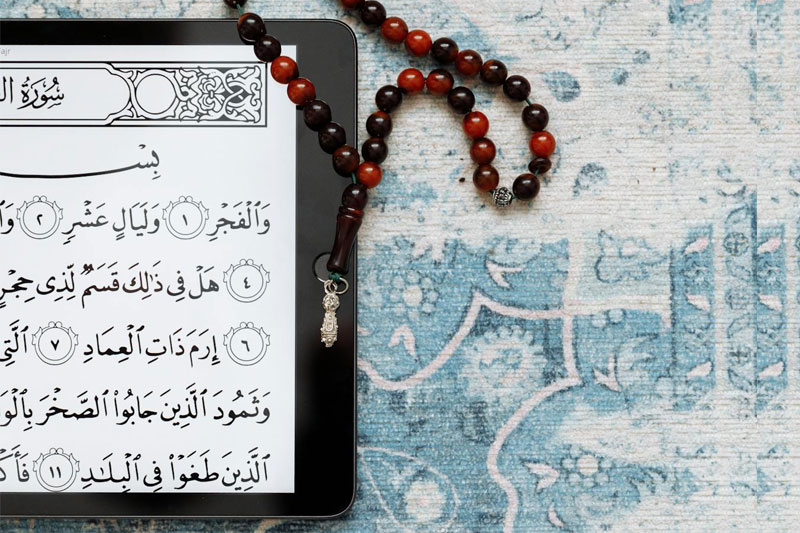 ajr
سُورَةُ ال
بِسْـ
وَٱلْفَجْرِ ١ وَلَيَالٍ عَشْرٍ ٢ وَٱ
٤ هَلْ فِى ذَٰلِكَ قَسَمٌ لِّذِى حِجْرٍ
٦ إِرَمَ ذَاتِ ٱلْعِمَادِ ٧ ٱلَّتِى
وَثَمُودَ ٱلَّذِينَ جَابُوا۟ ٱلصَّخْرَ بِٱلْوَ
ٱلَّذِينَ طَغَوْا۟ فِى ٱلْبِلَـٰدِ ١١ فَأَكْ